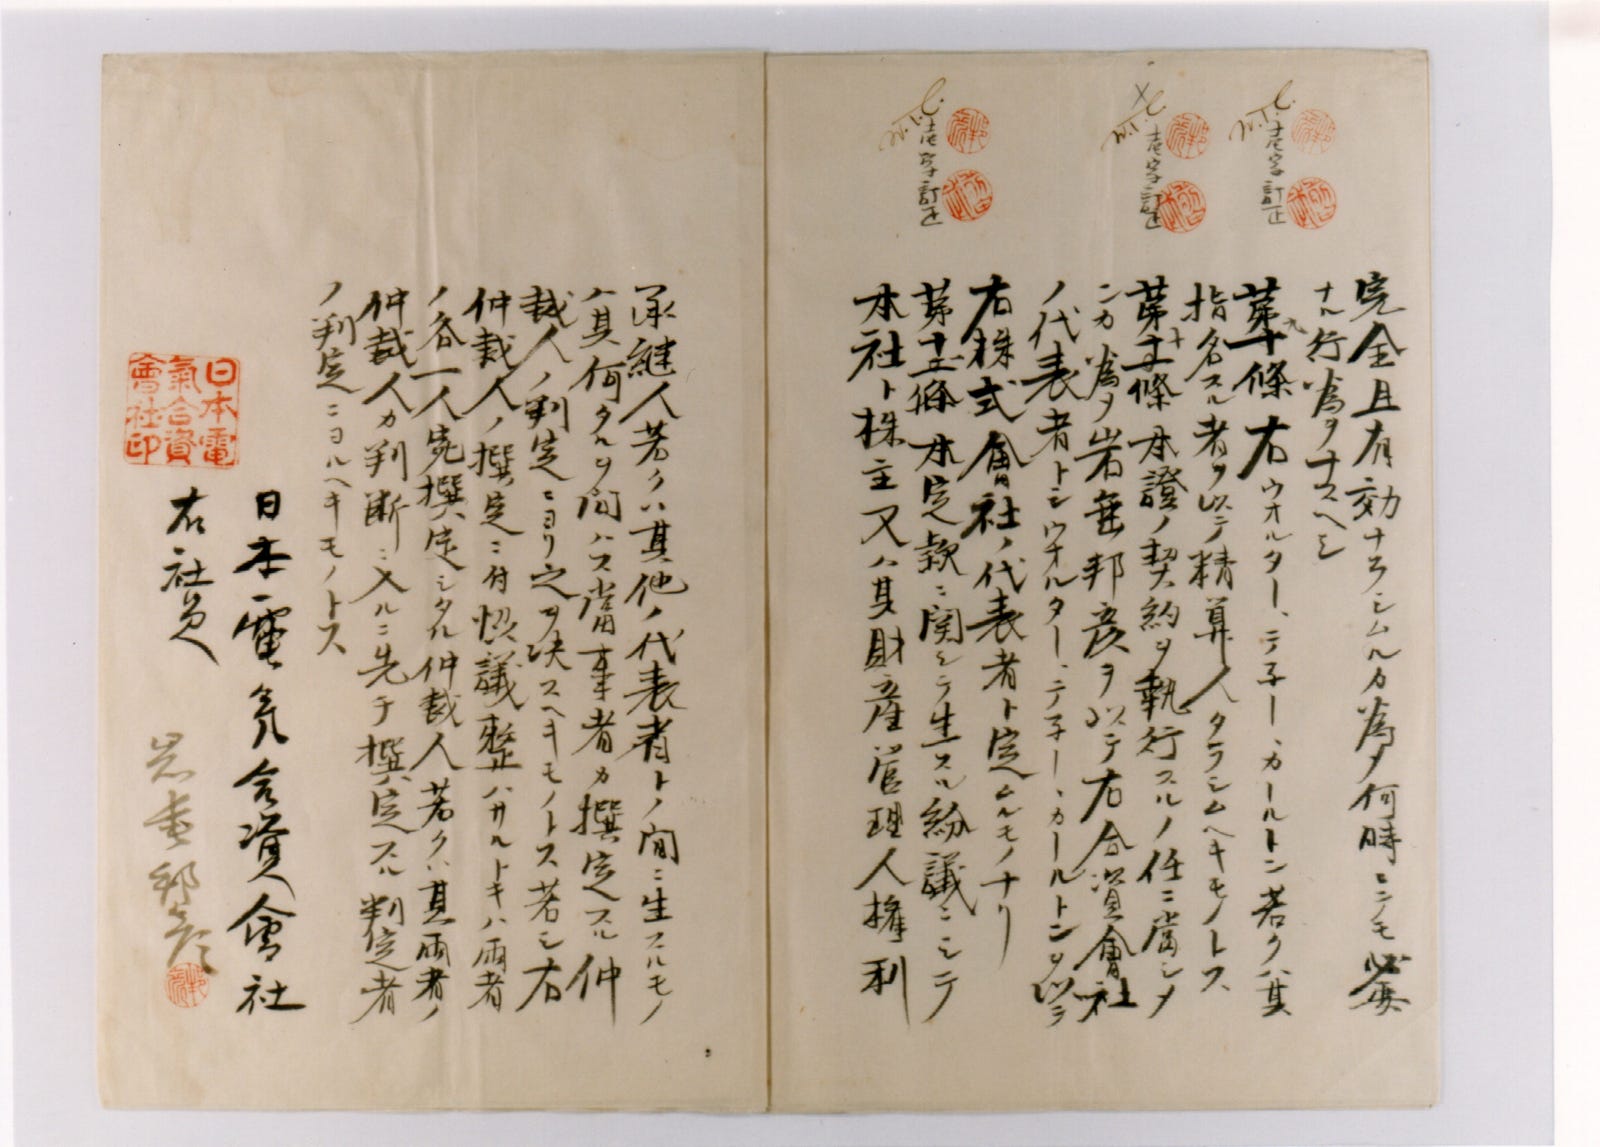 壱字訂正
壱字訂正
壱字訂正
完全且有効ナラシムルカ為メ何時ニテモ必要
ナル行為ヲナスヘシ
第九條 右ウオルター、テネー、カールトン若クハ其
指名スル者ヲ以テ精算人タラシムヘキモノトス
第十條 本證ノ契約ヲ執行スルノ任ニ當シメ
ンカ為メ岩垂邦彦ヲ以テ右合資會社
ノ代表者トシウオルター、テネー、カールトンヲ以テ
右株式會社ノ代表者ト定ムルモノナリ
第十一條 本定款ニ関シテ生スル紛議ニシテ
本社ト株主又ハ其財産管理人権利
承継人若クハ其他ノ代表者トノ間ニ生スルモノ
ハ其何タルヲ問ハス當事者カ撰定スル仲
裁人ノ判定ニヨリ之ヲ决スヘキモノトス若シ右
仲裁人ノ撰定ニ付恊議整ハサルトキハ両者
ノ各一人宛撰定シタル仲裁人若クハ其両者ノ
仲裁人カ判断ニ入ルニ先チ撰定スル判定者
ノ判定ニヨルヘキモノトス
日本電氣合資會社
右社員
岩垂邦彦
日本電
氣合資
會社印